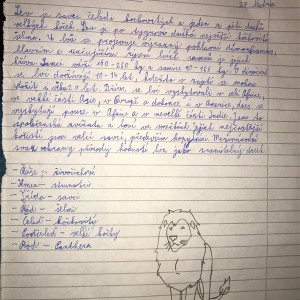 27. ledna
Lev je savec čeledi kočkovitých a jeden z pěti druhů
velkých koček. Lev je po tygrovi druhá největší kočkovitá
šelma. U lvů se projevuje výrazný pohlavní dimorfismus,
hlavním a určujícím rysem lvích samců je jejich
hříva. Samci váží 150-250 kg a samice 90-165 kg. V divočině
se lvi dožívají 10-14 let, kdežto v zajetí se mohou
dožít i věku 20 let. Dříve se lvi vyskytovali v celé Africe,
ve velké části Asie, v Evropě a dokonce i v Americe, dnes se
vyskytují pouze v Africe a v nevelké části Indie. Jsou to
společenská zvířata a loví ve smečkách, jejich nejčastější
kořistí jsou velcí savci, především kopytníci. Mezinárodní
svaz ochrany přírody hodnotí lva jako zranitelný druh
- Říše - živočichové
- Kmen - strunatci
- Třída - savci
- Řád - šelmy
- Čeleď - kočkovití
- Podčeleď - velké kočky
- Rod - Panthera